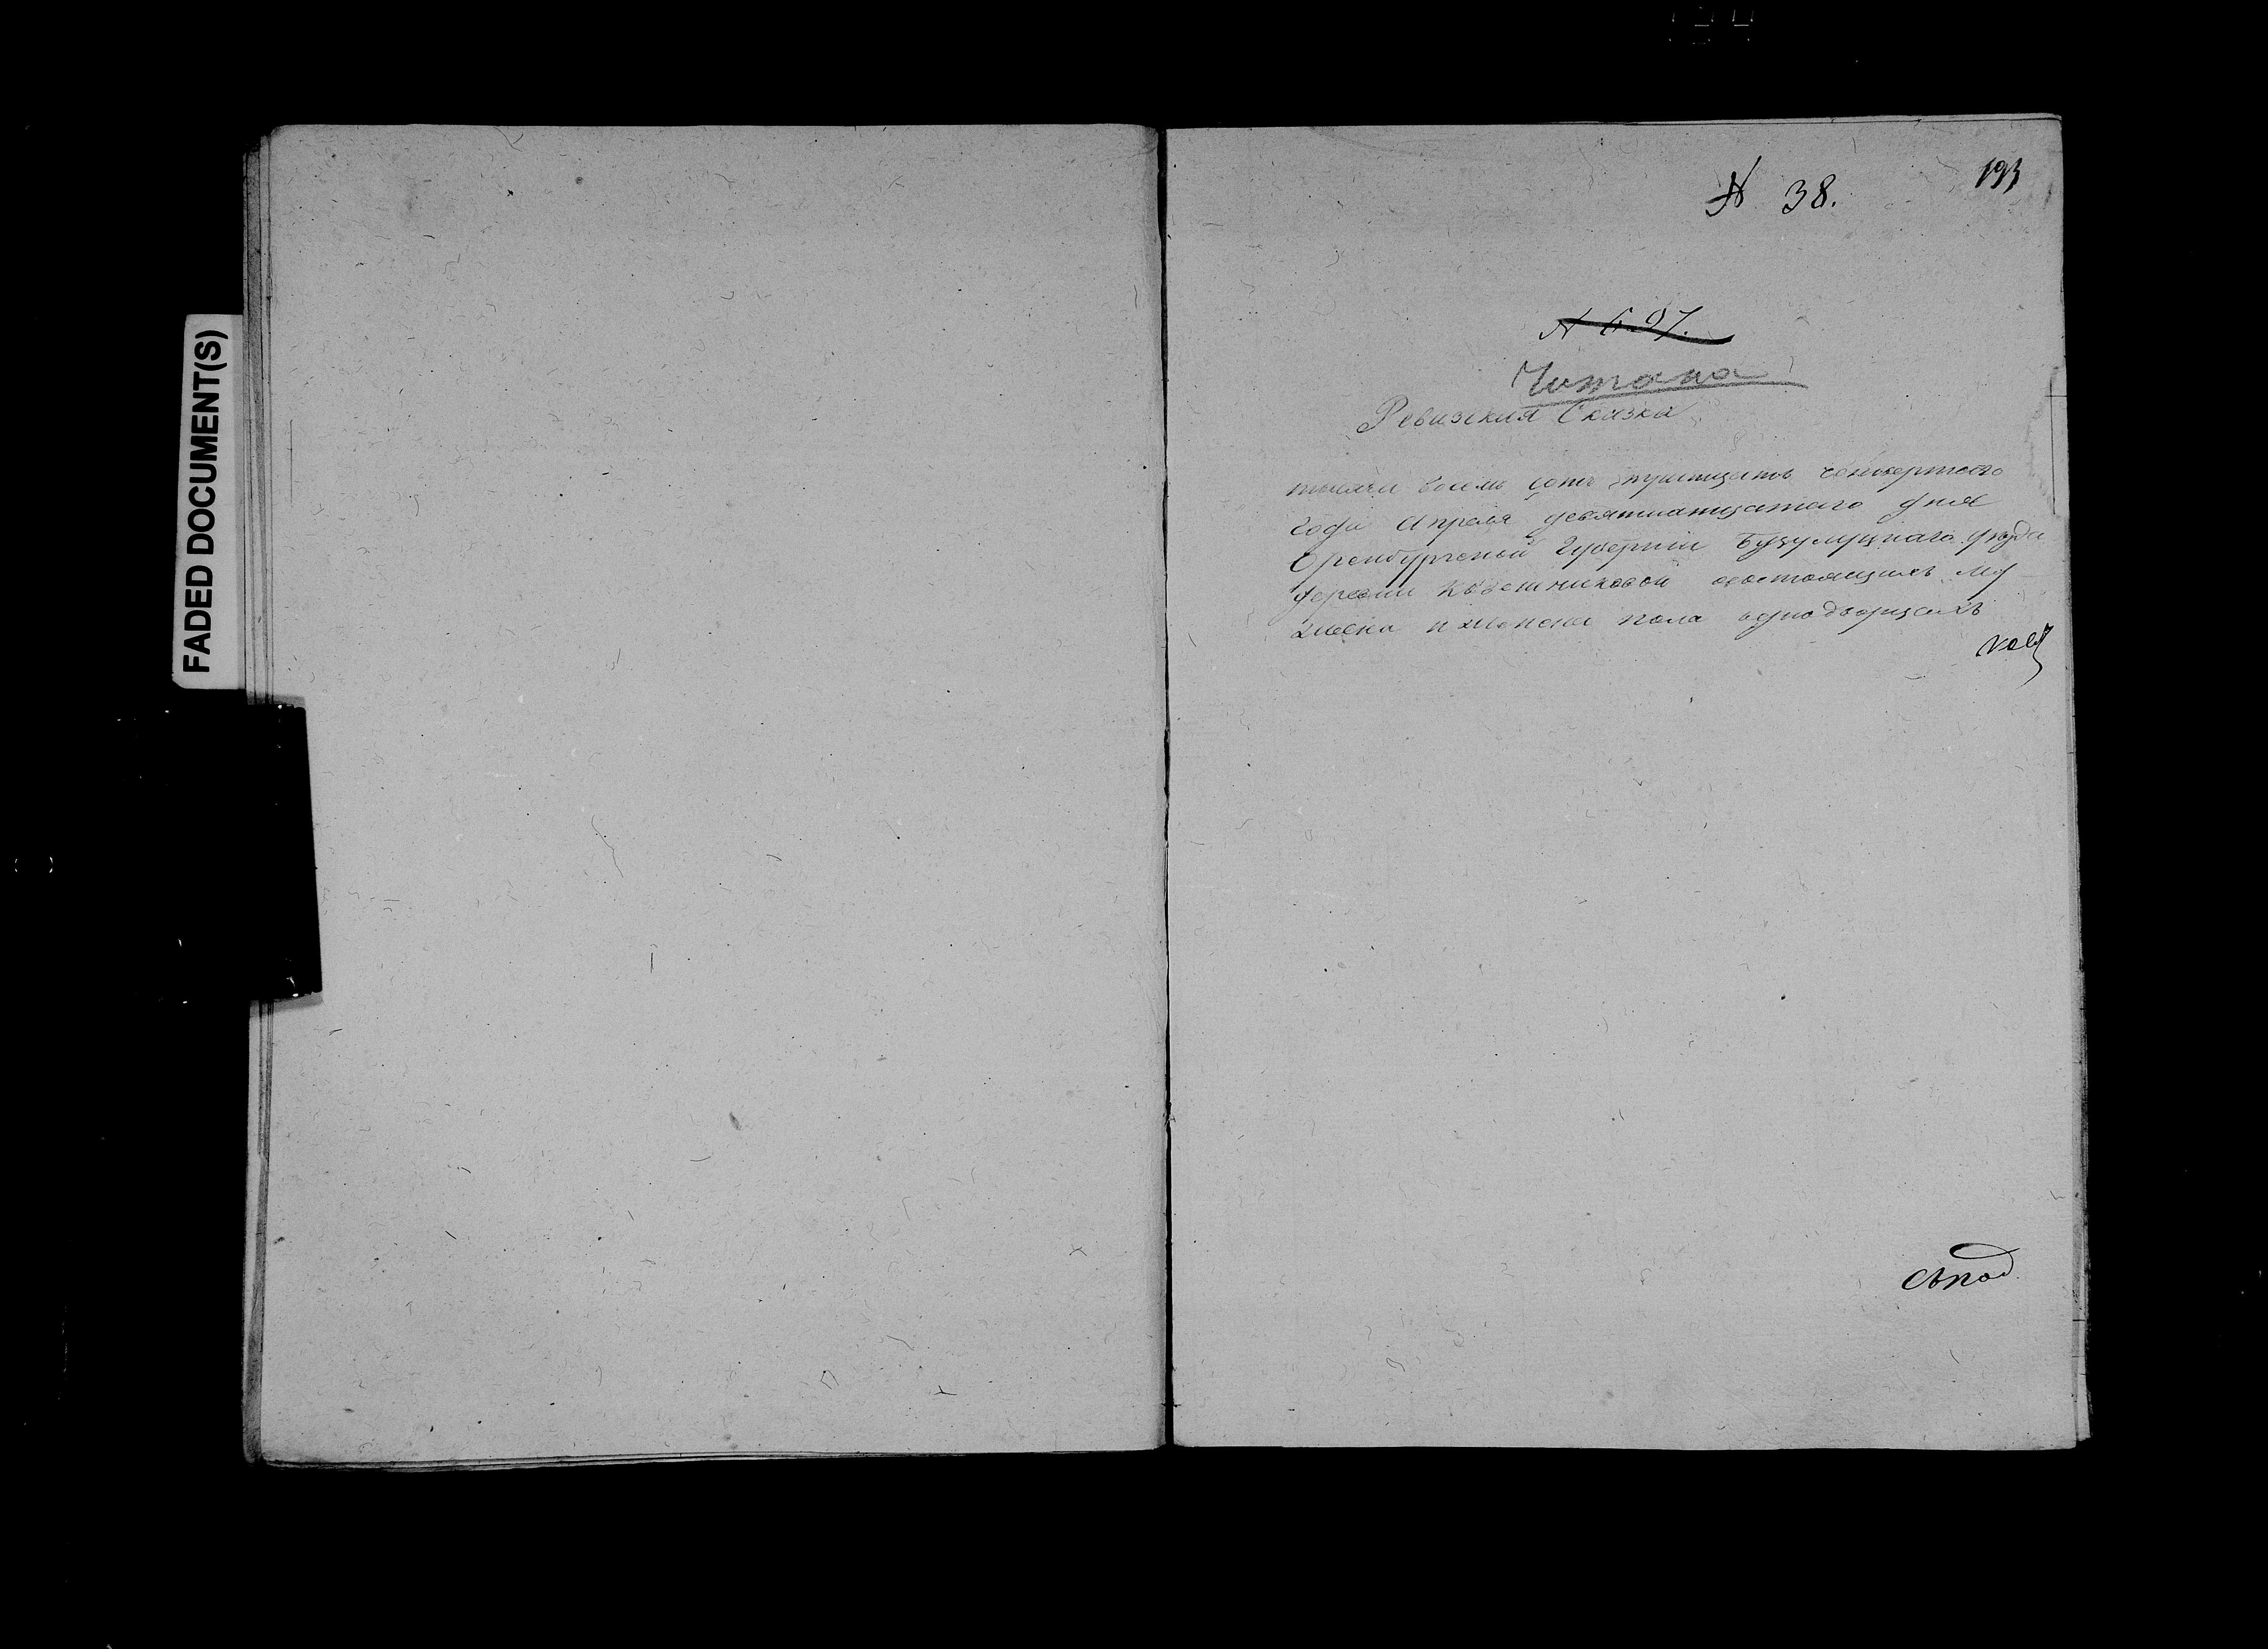 FADED DOCUMENT(S)
193
№ 38.
№ 697.
Читана
Ревизская Сказка
тысяча восемь сотъ тритцать четвертого
года Апреля девятнатцатого дня
Оренбургской Губернии Бузулуцкаго уезда
деревни состоящихъ му
жеска и женска пола однодворцахъ